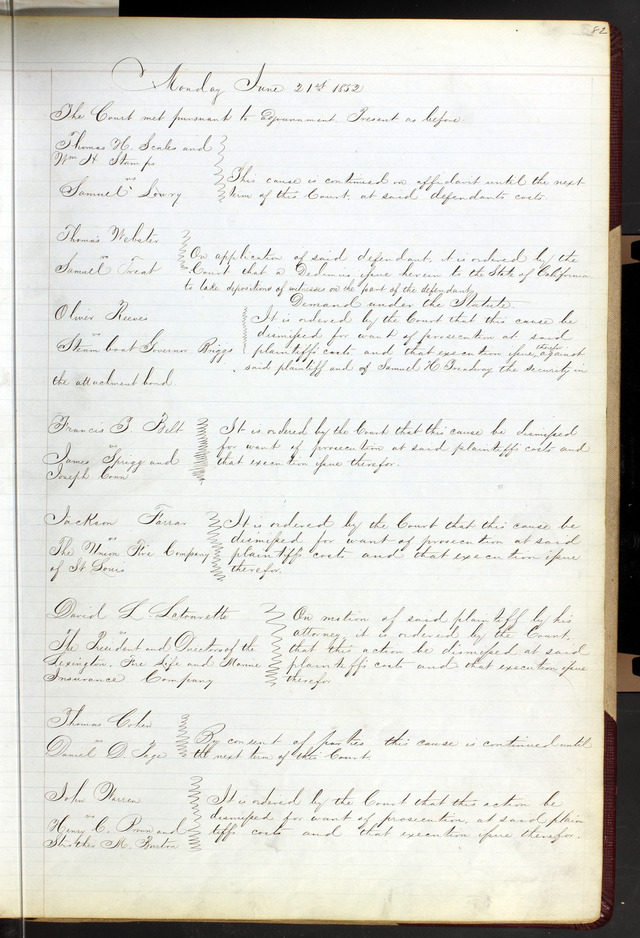 82
Monday June 21st 1852
The Court met pursuant to Adjournment Present as before
Thomas H. Scales and
Wm H Stamps
vs
Samuel Lowry
This cause is continued on affidavit until the next
term of this Court, at said defendants costs.
Thomas Webster
vs
Samuel Treat
On application of said defendant, it is ordered by the
Court that a Dedimus issue herein to the State of California
to take depositions of witnesses on the part of the defendant
Demand under the Statute.
Oliver Reeves
vs
Steam boat Governor Briggs
It is ordered by the Court that this cause be
dismissed for want of prosecution at said
plaintiffs costs and that execution issue therefor against
said plaintiff and of Samuel H. the security in
the attachment bond
Francis T. Belt
vs
James Sprigg and
Joseph Conn
It is ordered by the Court that this cause be dismissed
for want of prosecution at said plaintiffs costs and
that execution issue therefor.
Jackson Farrar
vs
The Union Fire Company
of St Louis
It is ordered by the Court that this cause be
dismissed for want of prosecution at said
plaintiffs costs and that execution issue
therefor.
David L. Latourette
vs
The President and Directors of the
Lexington, Fire Life and Marine
Insurance Company
On motion of said plaintiff by his
attorney, it is ordered by the Court,
that this action be dismissed at said
plaintiffs costs and that execution issue
therefor
Thomas Cohen
vs
Daniel D. Page
By consent of parties this cause is continued until
the next term of this Court
John Warren
vs
Henry C. and
M. Burton
It is ordered by the Court that this action be
dismissed for want of prosecution, at said plain
tiffs costs and that execution issue therefor.